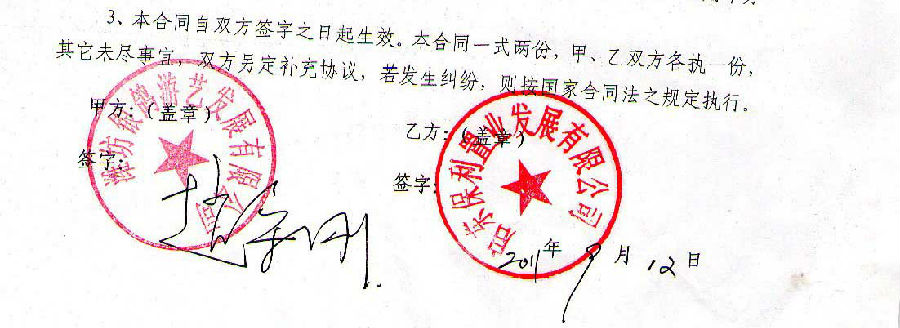 3、本合同自双方签字之日起生效。本合同一式两份，甲、乙双方各执 份，
其它未尽事宜，双方另定补充协议，若发生纠纷，则按国家合同法之规定执行。
甲方：（盖章）
签字：
潍坊 游艺发展有限公司
乙方：（盖章）
签字：
启东保利置业发展有限公司
2011年 9月12日